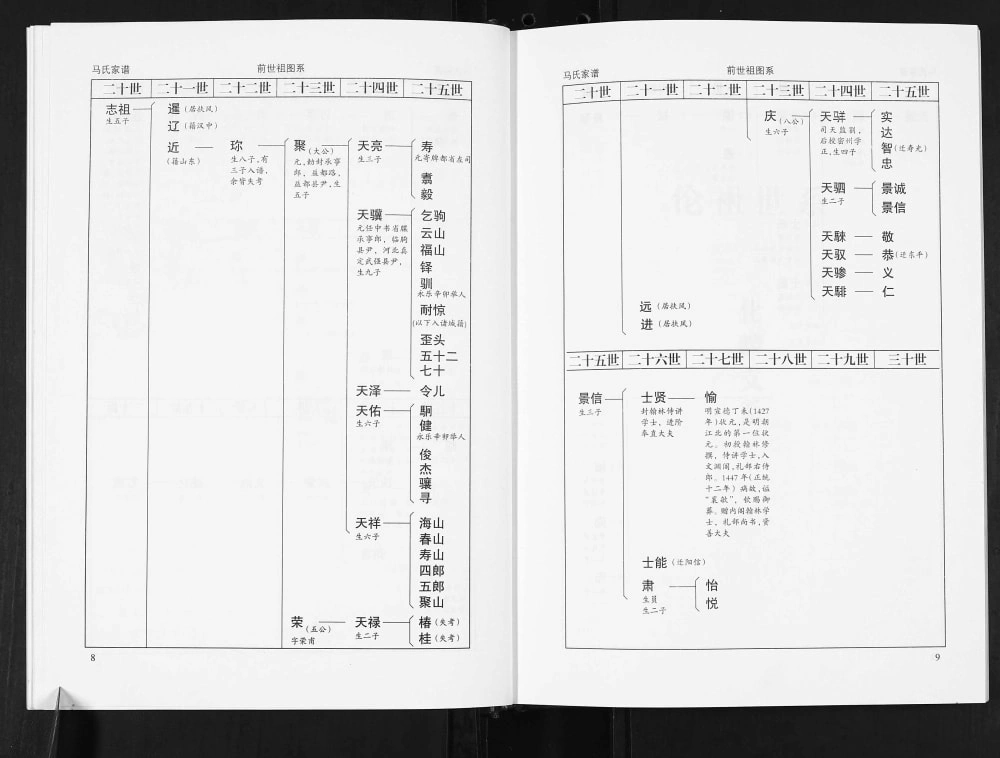 马氏家谱
前世祖图系
二十世 二十一世 二十二世 二十三世 二十四世 二十五世
志祖
生五子
暹(居扶风)
辽(籍汉中)
近
(籍山东)
珎
生八子,有
三子入谱,
余皆失考
聚(大公)
元,勅封承事
郎,益都路,
益都县尹,生
五子
天亮
生三子
寿
元寄牌都省左司
翥
毅
天骥
元任中书省臊
承事郎,临朐
县尹,河北真
定武强县尹,
生九子
乞驹
云山
福山
铎
驯
永乐辛卯举人
耐惊
(以下入诸城籍)
歪头
五十二
七十
天泽
令儿
天佑
生六子
駉
健
永乐辛卯举人
俊
杰
骧
寻
天祥
生六子
海山
春山
寿山
四郎
五郎
聚山
荣(五公)
字荣甫
天禄
生二子
椿(失考)
桂(失考)
8
马氏家谱
前世祖图系
二十世 二十一世 二十二世 二十三世 二十四世 二十五世
庆(八公)
生六子
天骍
司天监副,
后授密州学
正,生四子
实
达
智(迁寿光)
忠
天驷
生二子
景诚
景信
天騋
敬
天驭
恭(迁东平)
天骖
义
天騑
仁
远(居扶风)
进(居扶风)
二十五世 二十六世 二十七世 二十八世 二十九世 三十世
景信
生三子
士贤
封翰林侍讲
学士,进阶
奉直大夫
愉
明宣德丁未(1427
年)状元,是明朝
江北的第一位状
元。初授翰林修
撰,侍讲学士,入
文渊阁,礼部右侍
郎。1447年(正统
十二年)病故,谥
“襄敏”,钦赐御
葬。赠内阁翰林学
士,礼部尚书,资
善大夫
士能(迁阳信)
肃
生员
生二子
怡
悦
9